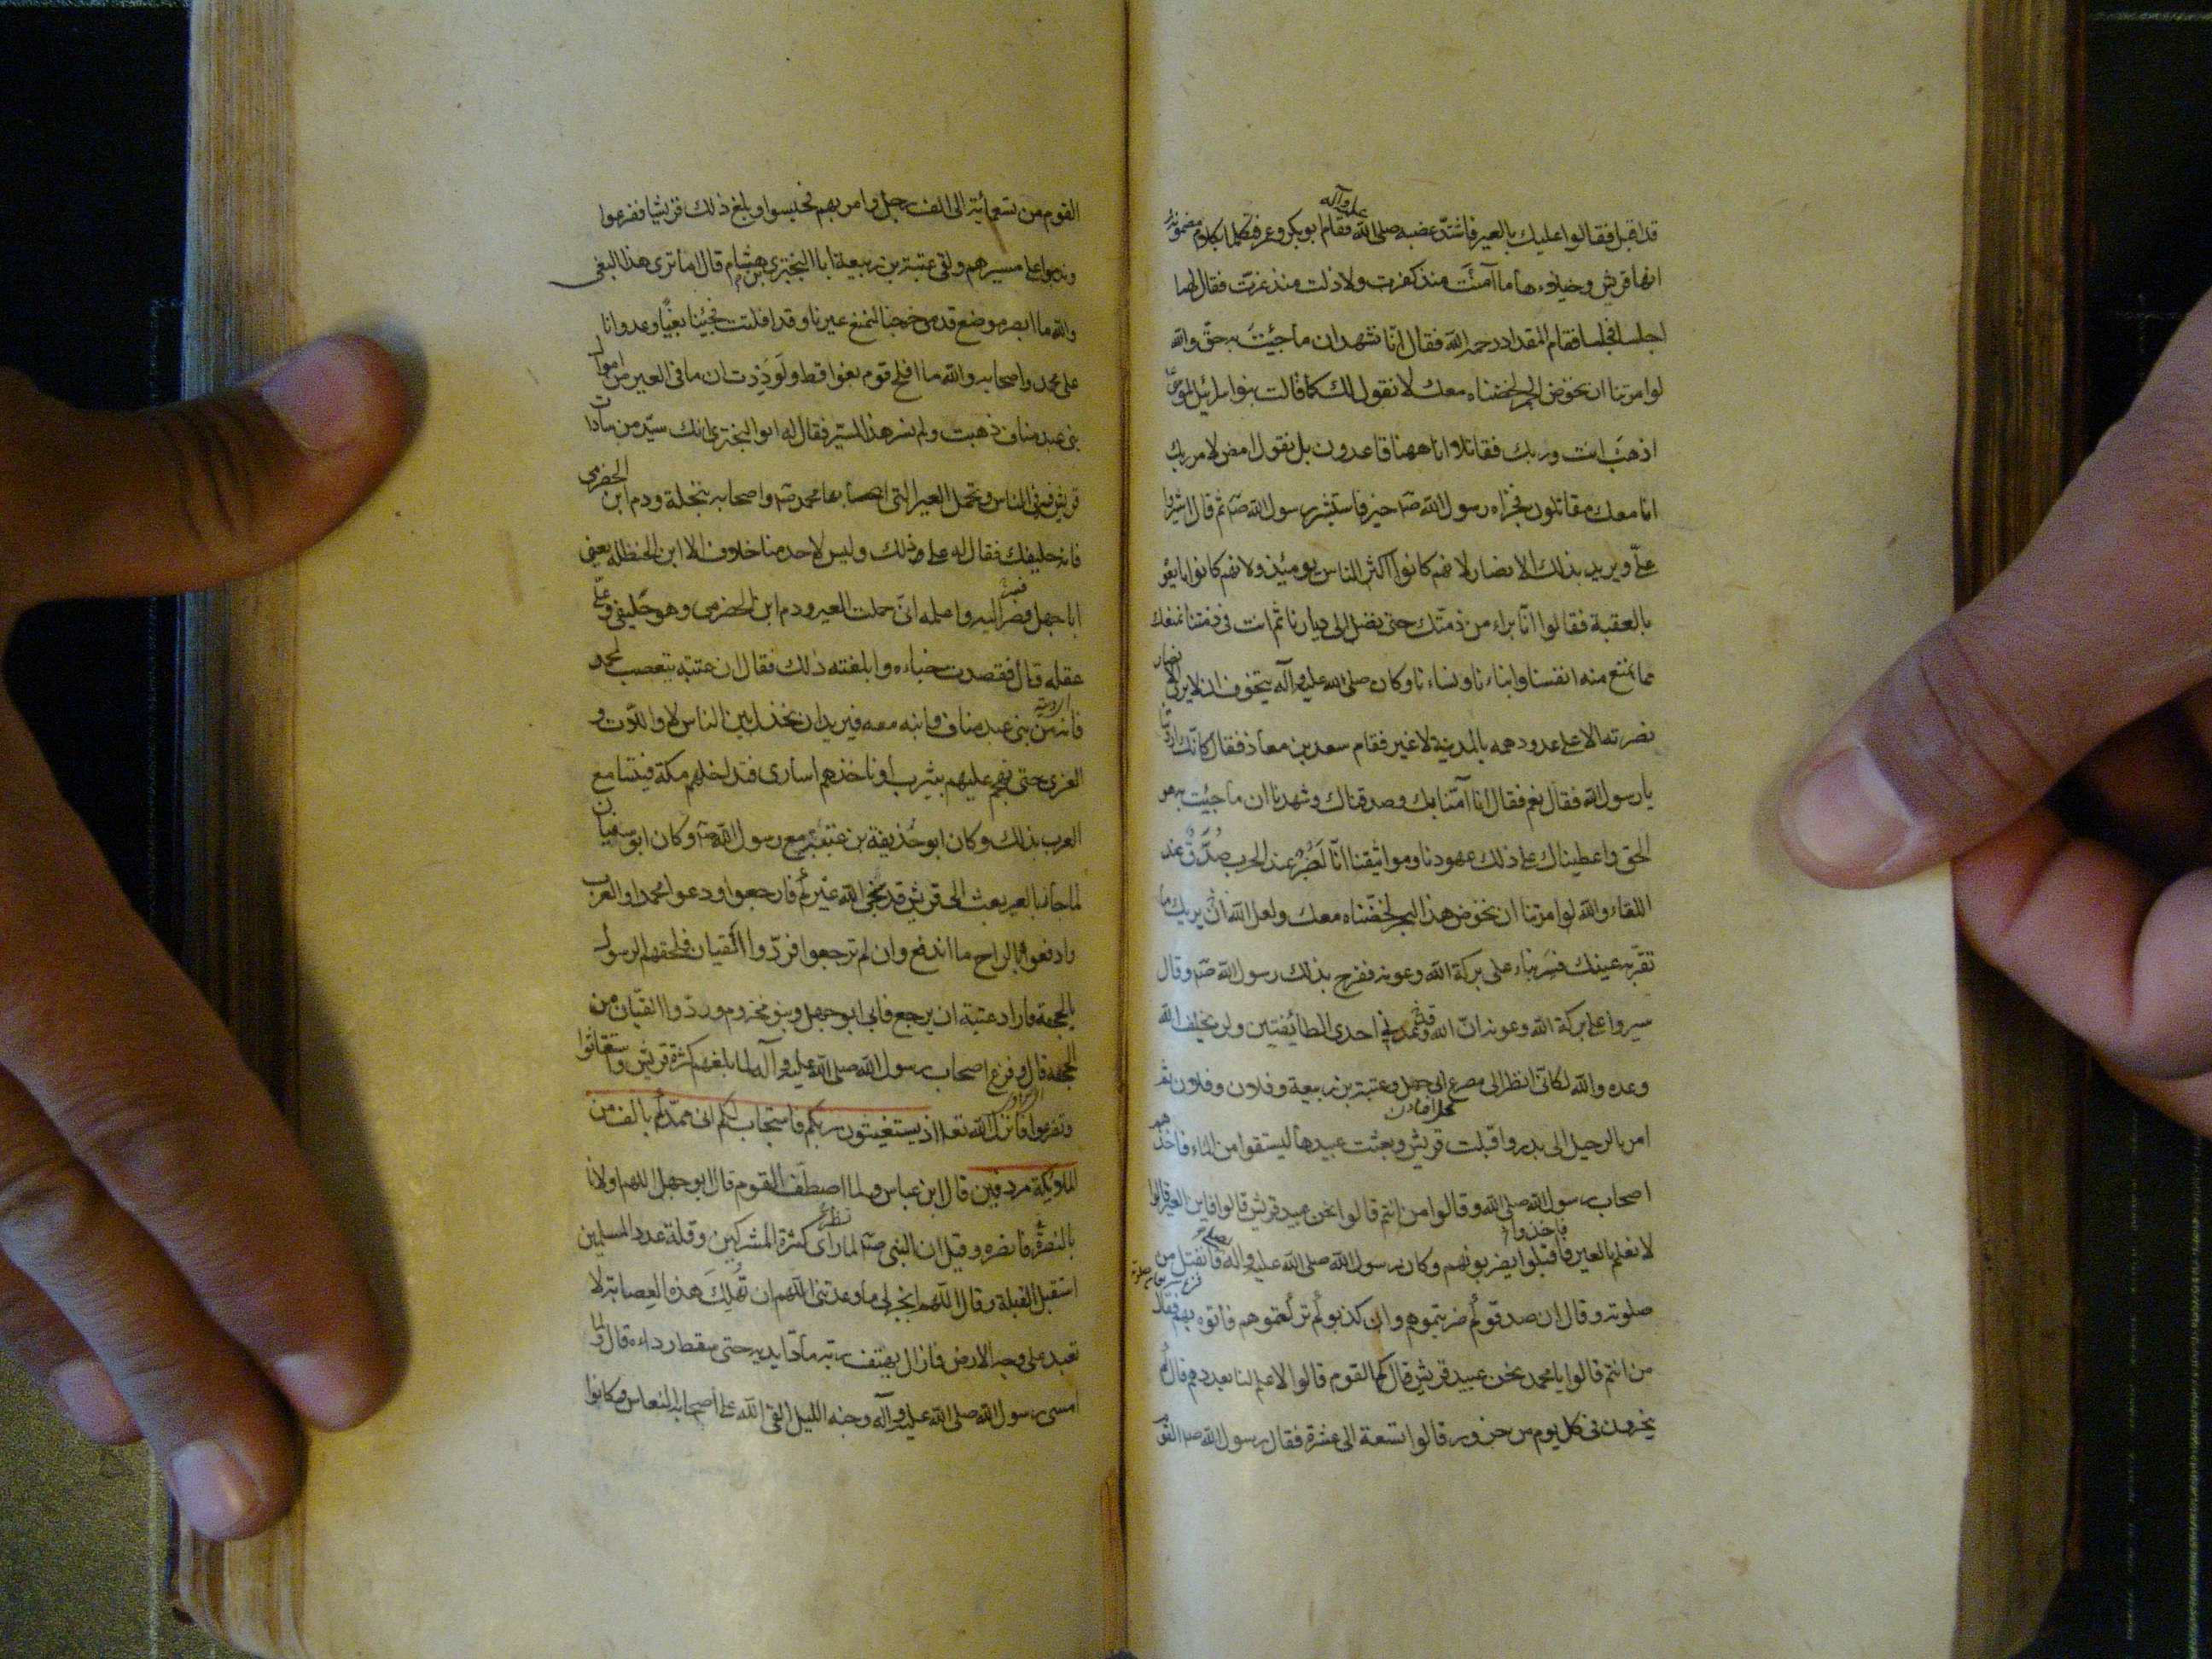 قد اقبل فقالوا عليك بالعير فاشتد غضبه صلى الله عليه وآله فقام ابو بكر وعمر فتكلما بكلام مضمونه
انها قريش وخيلاءها ما آمنت منذ كفرت ولا ذلت منذ عزت فقال لهما
اجلسا فجلسا فقام المقداد رحمه الله فقال انا نشهد ان ما جئت به حق والله
لو امرتنا ان نخوض البحر لخضناه معك لا نقول لك كما قالت بنو اسرائيل لموسى
اذهب انت وربك فقاتلا انا ههنا قاعدون بل نقول امض لامر ربك
انا معك مقاتلون فجزاه رسول الله صه خيرا فاستبشر رسول الله صه ثم قال اشيروا
علي ويريد بذلك الانصار لانهم كانوا اكثر الناس يومئذ ولانهم كانوا بايعوا
بالعقبة فقالوا انا براء من ذمتك حتى تصل الى ديارنا ثم انت في ذمتنا نمنعك
مما نمنع منه انفسنا وابناءنا ونساءنا وكان صلى الله عليه وآله يتخوف ان لا يرى الانصار
نصرته الا على عدو دهمه بالمدينة لا غير فقام سعد بن معاذ فقال كانك اردتنا
يا رسول الله فقال نعم فقال انا آمنا بك وصدقناك وشهدنا ان ما جئت به هو
الحق واعطيناك على ذلك عهودنا ومواثيقنا انا لصبر عند الحرب صدق عند
اللقاء والله لو امرتنا ان نخوض هذا البحر لخضناه معك ولعل الله ان يريك ما
تقر به عينك فسر بنا على بركة الله وعونه ففرح بذلك رسول الله صه وقال
سيروا على بركة الله وعونه ان الله قد وعدني احدى الطائفتين ولن يخلف الله
وعده والله لكاني انظر الى مصرع ابي جهل وعتبة بن ربيعة وفلان وفلان ثم
امر بالرحيل الى بدر واقبلت قريش وبعثت عبيدها ليستقوا من الماء فاخذهم
اصحاب رسول الله صلى الله وقالوا من انتم قالوا نحن عبيد قريش قالوا فاين العير قالوا
لا نعلم بالعير فاقبلوا يضربونهم وكان رسول الله صلى الله عليه وآله فانفتل من
صلوته وقال ان صدقوكم ضربتموهم وان كذبوكم تركتموهم فاتوه بهم فقال
من انتم قالوا يا محمد نحن عبيد قريش قال كم القوم قالوا لا علم لنا بعددهم قال كم
ينحرون في كل يوم من جزور قالوا تسعة الى عشرة فقال رسول الله صه القوم
القوم من تسعمائة الى الف رجل وامر بهم فحبسوا وبلغ ذلك قريشا ففزعوا
وندموا على مسيرهم ولقى عتبة بن ربيعة ابا البختري بن هشام قال اما ترى هذا البغى
والله ما ابصر موضع قدمى خرجنا لنمنع عيرنا وقد افلتت فجئنا بغيا وعدوانا
على محمد واصحابه والله ما افلح قوم بغوا قط ولوددت ان ما في العير من اموال
بني عبد مناف ذهبت ولم نسر هذا المسير فقال له ابو البختري انك سيد من سادات
قريش في الناس وتحمل العير التى اصابها محمد صه واصحابه بنخلة ودم ابن الحضرمى
فانه حليفك فقال له علي ذلك وليس لاحد منا خلاف الا ابن الحنظله يعنى
ابا جهل فصر اليه واعلمه انى حملت العير ودم ابن الحضرمى وهو حليفى وعلى
عقله قال فقصدت خباءه وابلغته ذلك فقال ان عتبة يتعصب لمحمد
فانه من بنى عبد مناف وابنه معه فيريد ان يخذل بين الناس لا واللات و
العزى حتى نهجم عليهم بيثرب او ناخذهم اسارى فندخلهم مكة فيتسامع
العرب بذلك وكان ابو حذيفة بن عتبة مع رسول الله صه وكان ابو سفيان
لما جاز بالعير بعث الى قريش قد نجى الله عيركم فارجعوا ودعوا محمدا والعرب
وادفعوا بالراح ما اندفع وان لم ترجعوا فردوا القيان فلحقهم الرسول
بالجحفة فاراد عتبة ان يرجع فابى ابو جهل وبنو مخزوم وردوا القيان من
الجحفة قال وفزع اصحاب رسول الله صلى الله عليه وآله لما بلغهم كثرة قريش واستغاثوا
وتضرعوا فانزل الله تعالى اذ تستغيثون ربكم فاستجاب لكم انى ممدكم بالف من
الملائكة مردفين قال ابن عباس ولما اصطف القوم قال ابو جهل اللهم اولانا
بالنصر فانصره وقيل ان النبى صه لما راى كثرة المشركين وقلة عدد المسلمين
استقبل القبلة وقال اللهم انجز لى ما وعدتنى اللهم ان تهلك هذه العصابة لا
تعبد على وجه الارض فما زال يهتف ربه مادا يديه حتى سقط رداءه قال ولما
امسى رسول الله صلى الله عليه وآله وجنه الليل القى الله على اصحابه النعاس وكانوا